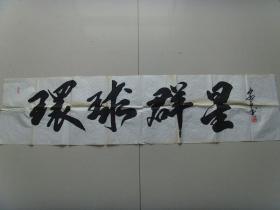 環球群星